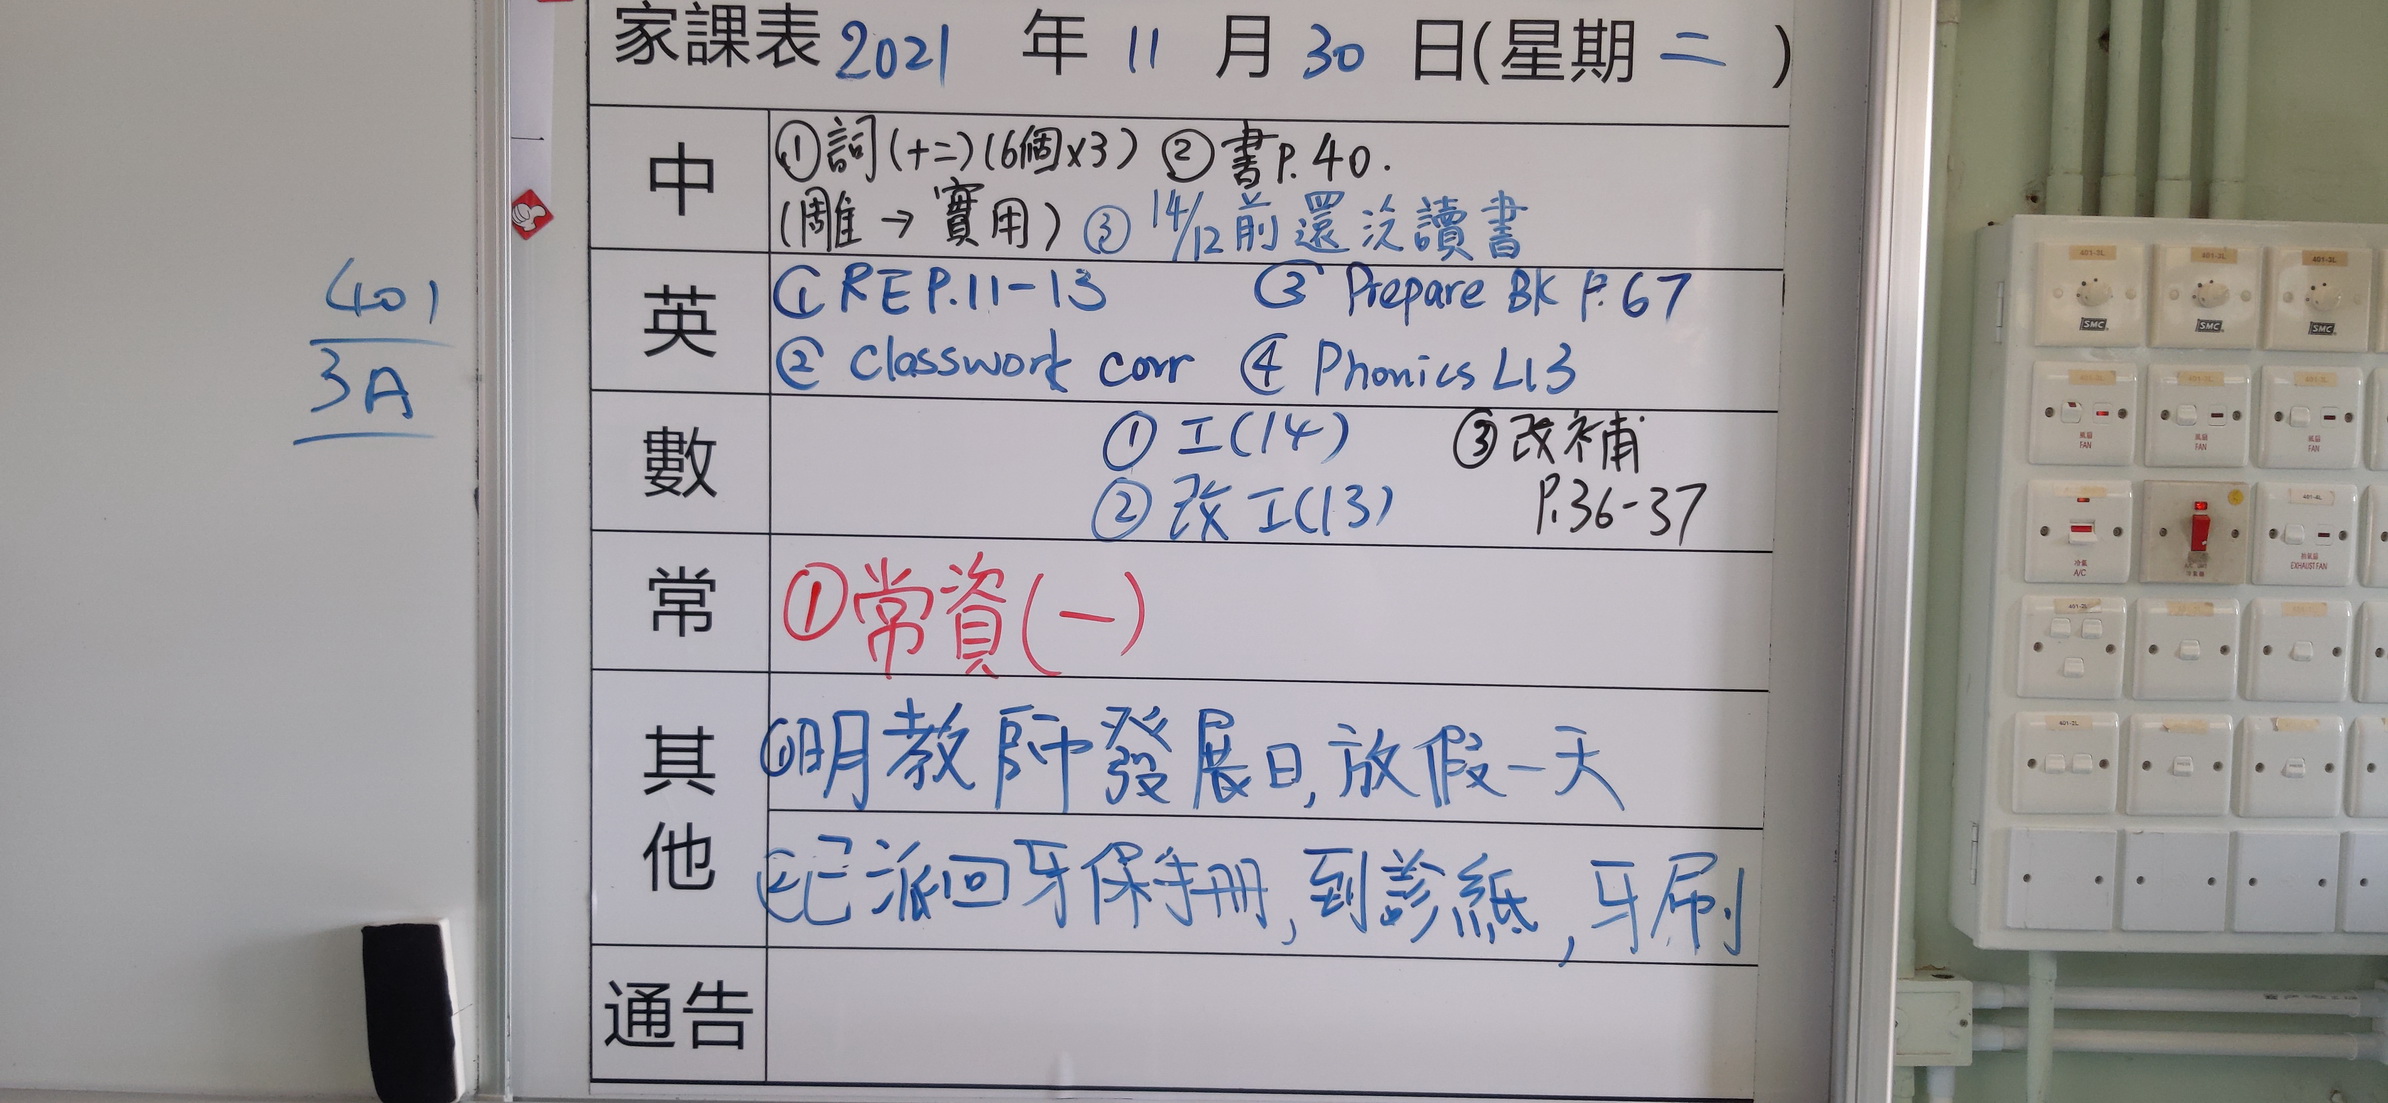 家課表 2021 年 11 月 30 日(星期 二 )
中
①詞(十二)(6個x3) ②書P.40.
(雕→實用) ③ 14/12前還泛讀書
英
① RE P.11-13 ③ Prepare BK P.67
② Classwork corr ④ Phonics L13
數
① 工(14) ③改補
② 改工(13) P.36-37
常
①常資(一)
其他
①明教師發展日,放假一天
②已派回牙保手冊,到診紙,牙刷
通告
401
3A
401-3L
401-3L
401-3L
SMC
SMC
SMC
風扇
FAN
風扇
FAN
風扇
FAN
冷氣
A/C
抽氣扇
EXHAUST FAN